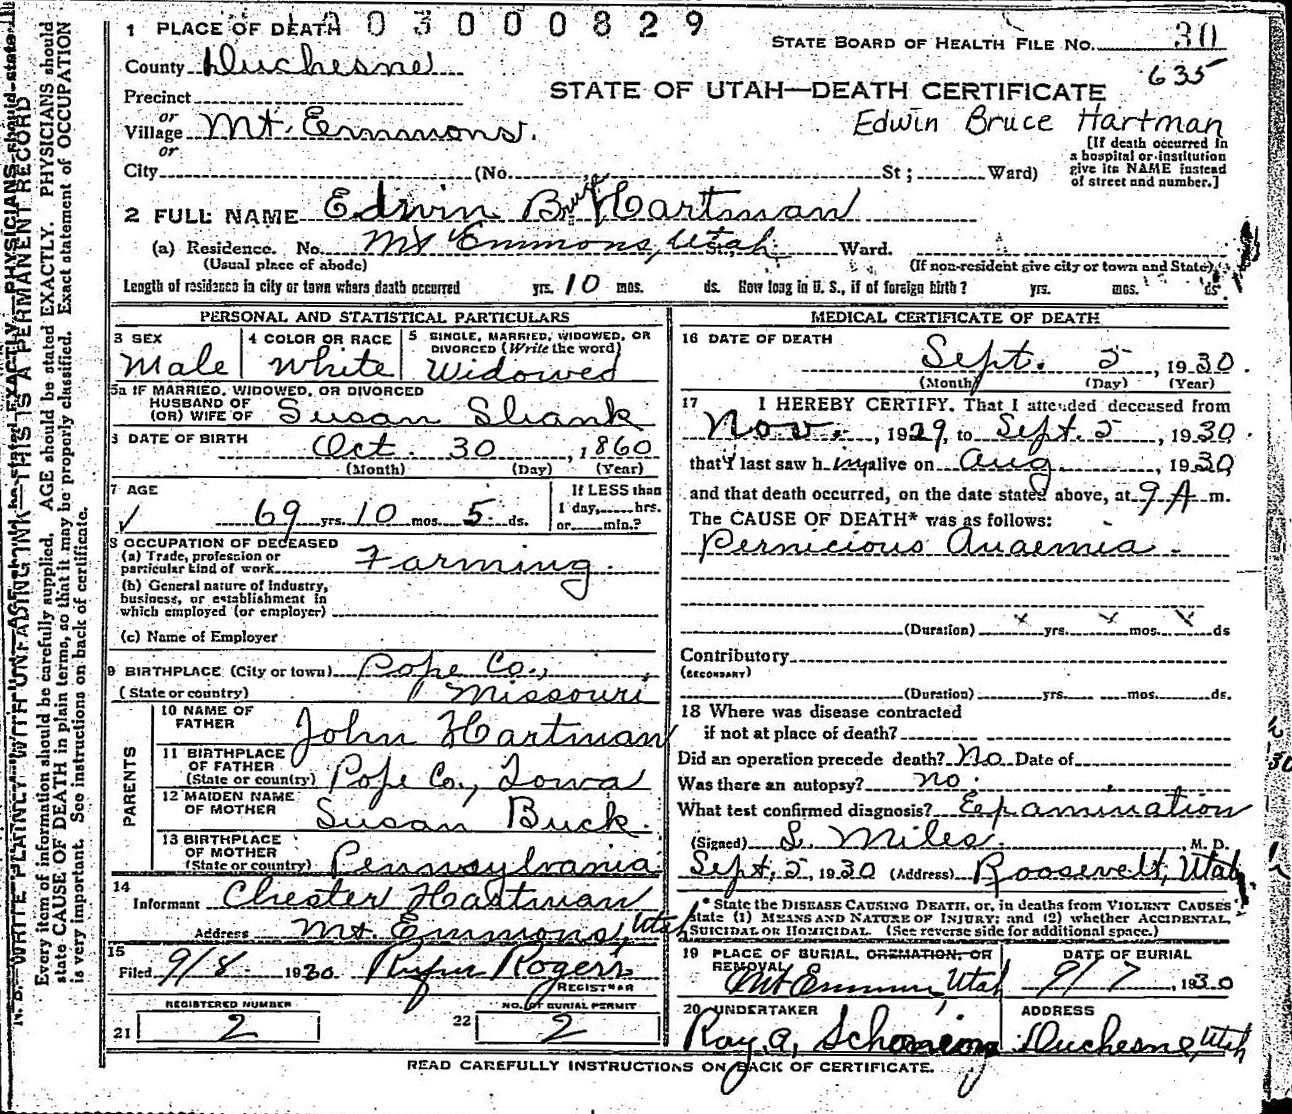 1 PLACE OF DEATH 0 3 0 0 0 8 2 9
STATE BOARD OF HEALTH FILE NO. 30
635
County Duchesne
STATE OF UTAH—DEATH CERTIFICATE
Precinct
or
Village Mt. Emmons.
or
Edwin Bruce Hartman
[If death occurred in
a hospital or institution
give its NAME instead
of street and number.]
City (No. St; Ward)
2 FULL NAME Edwin Bruce Hartman
(a) Residence. No. Mt Emmons, Utah St., Ward.
(Usual place of abode) (If non-resident give city or town and State)
Length of residence in city or town where death occurred yrs. 10 mos. ds. How long in U. S., if of foreign birth? yrs. mos. ds.
PERSONAL AND STATISTICAL PARTICULARS
3 SEX Male
4 COLOR OR RACE White
5 SINGLE, MARRIED, WIDOWED, OR
DIVORCED (Write the word)
Widowed
5a IF MARRIED, WIDOWED, OR DIVORCED
HUSBAND OF
(OR) WIFE OF Susan Shank
6 DATE OF BIRTH Oct. 30, 1860
(Month) (Day) (Year)
7 AGE
69 yrs. 10 mos. 5 ds.
If LESS than
1 day, hrs.
or min.?
8 OCCUPATION OF DECEASED
(a) Trade, profession or
particular kind of work Farming.
(b) General nature of industry,
business, or establishment in
which employed (or employer)
(c) Name of Employer
9 BIRTHPLACE (City or town) Pope Co.,
(State or country) Missouri
PARENTS
10 NAME OF
FATHER John Hartman
11 BIRTHPLACE
OF FATHER
(State or country) Pope Co., Iowa
12 MAIDEN NAME
OF MOTHER Susan Buck.
13 BIRTHPLACE
OF MOTHER
(State or country) Pennsylvania
14
Informant Chester Hartman
Address Mt. Emmons, Utah
15
Filed 9/8 1930 Rufus Rogers
REGISTRAR
REGISTERED NUMBER
21 2
NO. OF BURIAL PERMIT
22 2
MEDICAL CERTIFICATE OF DEATH
16 DATE OF DEATH
Sept. 5, 1930.
(Month) (Day) (Year)
17 I HEREBY CERTIFY, That I attended deceased from
Nov., 1929, to Sept. 5, 1930.
that I last saw him alive on Aug, 1930
and that death occurred, on the date stated above, at 9 A m.
The CAUSE OF DEATH* was as follows:
Pernicious Anaemia.
(Duration) x yrs. x mos. x ds
Contributory
(SECONDARY)
(Duration) yrs. mos. ds.
18 Where was disease contracted
if not at place of death?
Did an operation precede death? No Date of
Was there an autopsy? no.
What test confirmed diagnosis? Examination
(Signed) L. Miles. M. D.
Sept, 5, 1930 (Address) Roosevelt, Utah
* State the DISEASE CAUSING DEATH, or, in deaths from VIOLENT CAUSES
state (1) MEANS AND NATURE OF INJURY; and (2) whether ACCIDENTAL,
SUICIDAL OR HOMICIDAL. (See reverse side for additional space.)
19 PLACE OF BURIAL, CREMATION, OR
REMOVAL
Mt Emmons, Utah
DATE OF BURIAL
9/7, 1930
20 UNDERTAKER
Ray, A, Schonning
ADDRESS
Duchesne, Utah
READ CAREFULLY INSTRUCTIONS ON BACK OF CERTIFICATE.
N. B. WRITE PLAINLY WITH UNFADING INK—THIS IS A PERMANENT RECORD
Every item of information should be carefully supplied. AGE should be stated EXACTLY. PHYSICIANS should
state CAUSE OF DEATH in plain terms, so that it may be properly classified. Exact statement of OCCUPATION
is very important. See instructions on back of certificate.